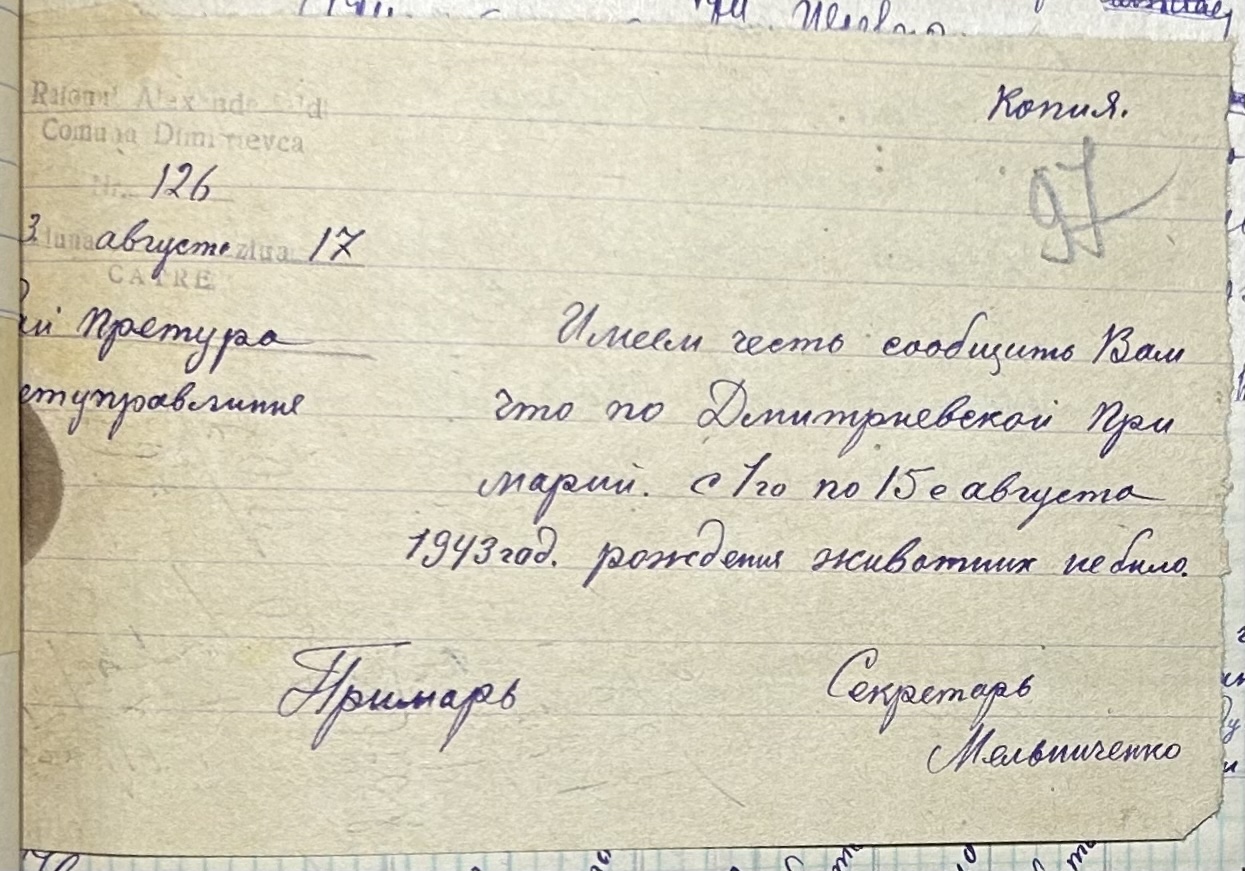 Копия.
97
Raionul Alexanderfeld
Comuna Dimitrievca
Nr. 126
3. luna августа ziua 17
CATRE
Претура
Имеем честь сообщить Вам
что по Дмитриевской При
марий. с 1го по 15 е августа
1943 год. рождения животних не било.
Примарь
Секретарь
Мельниченко